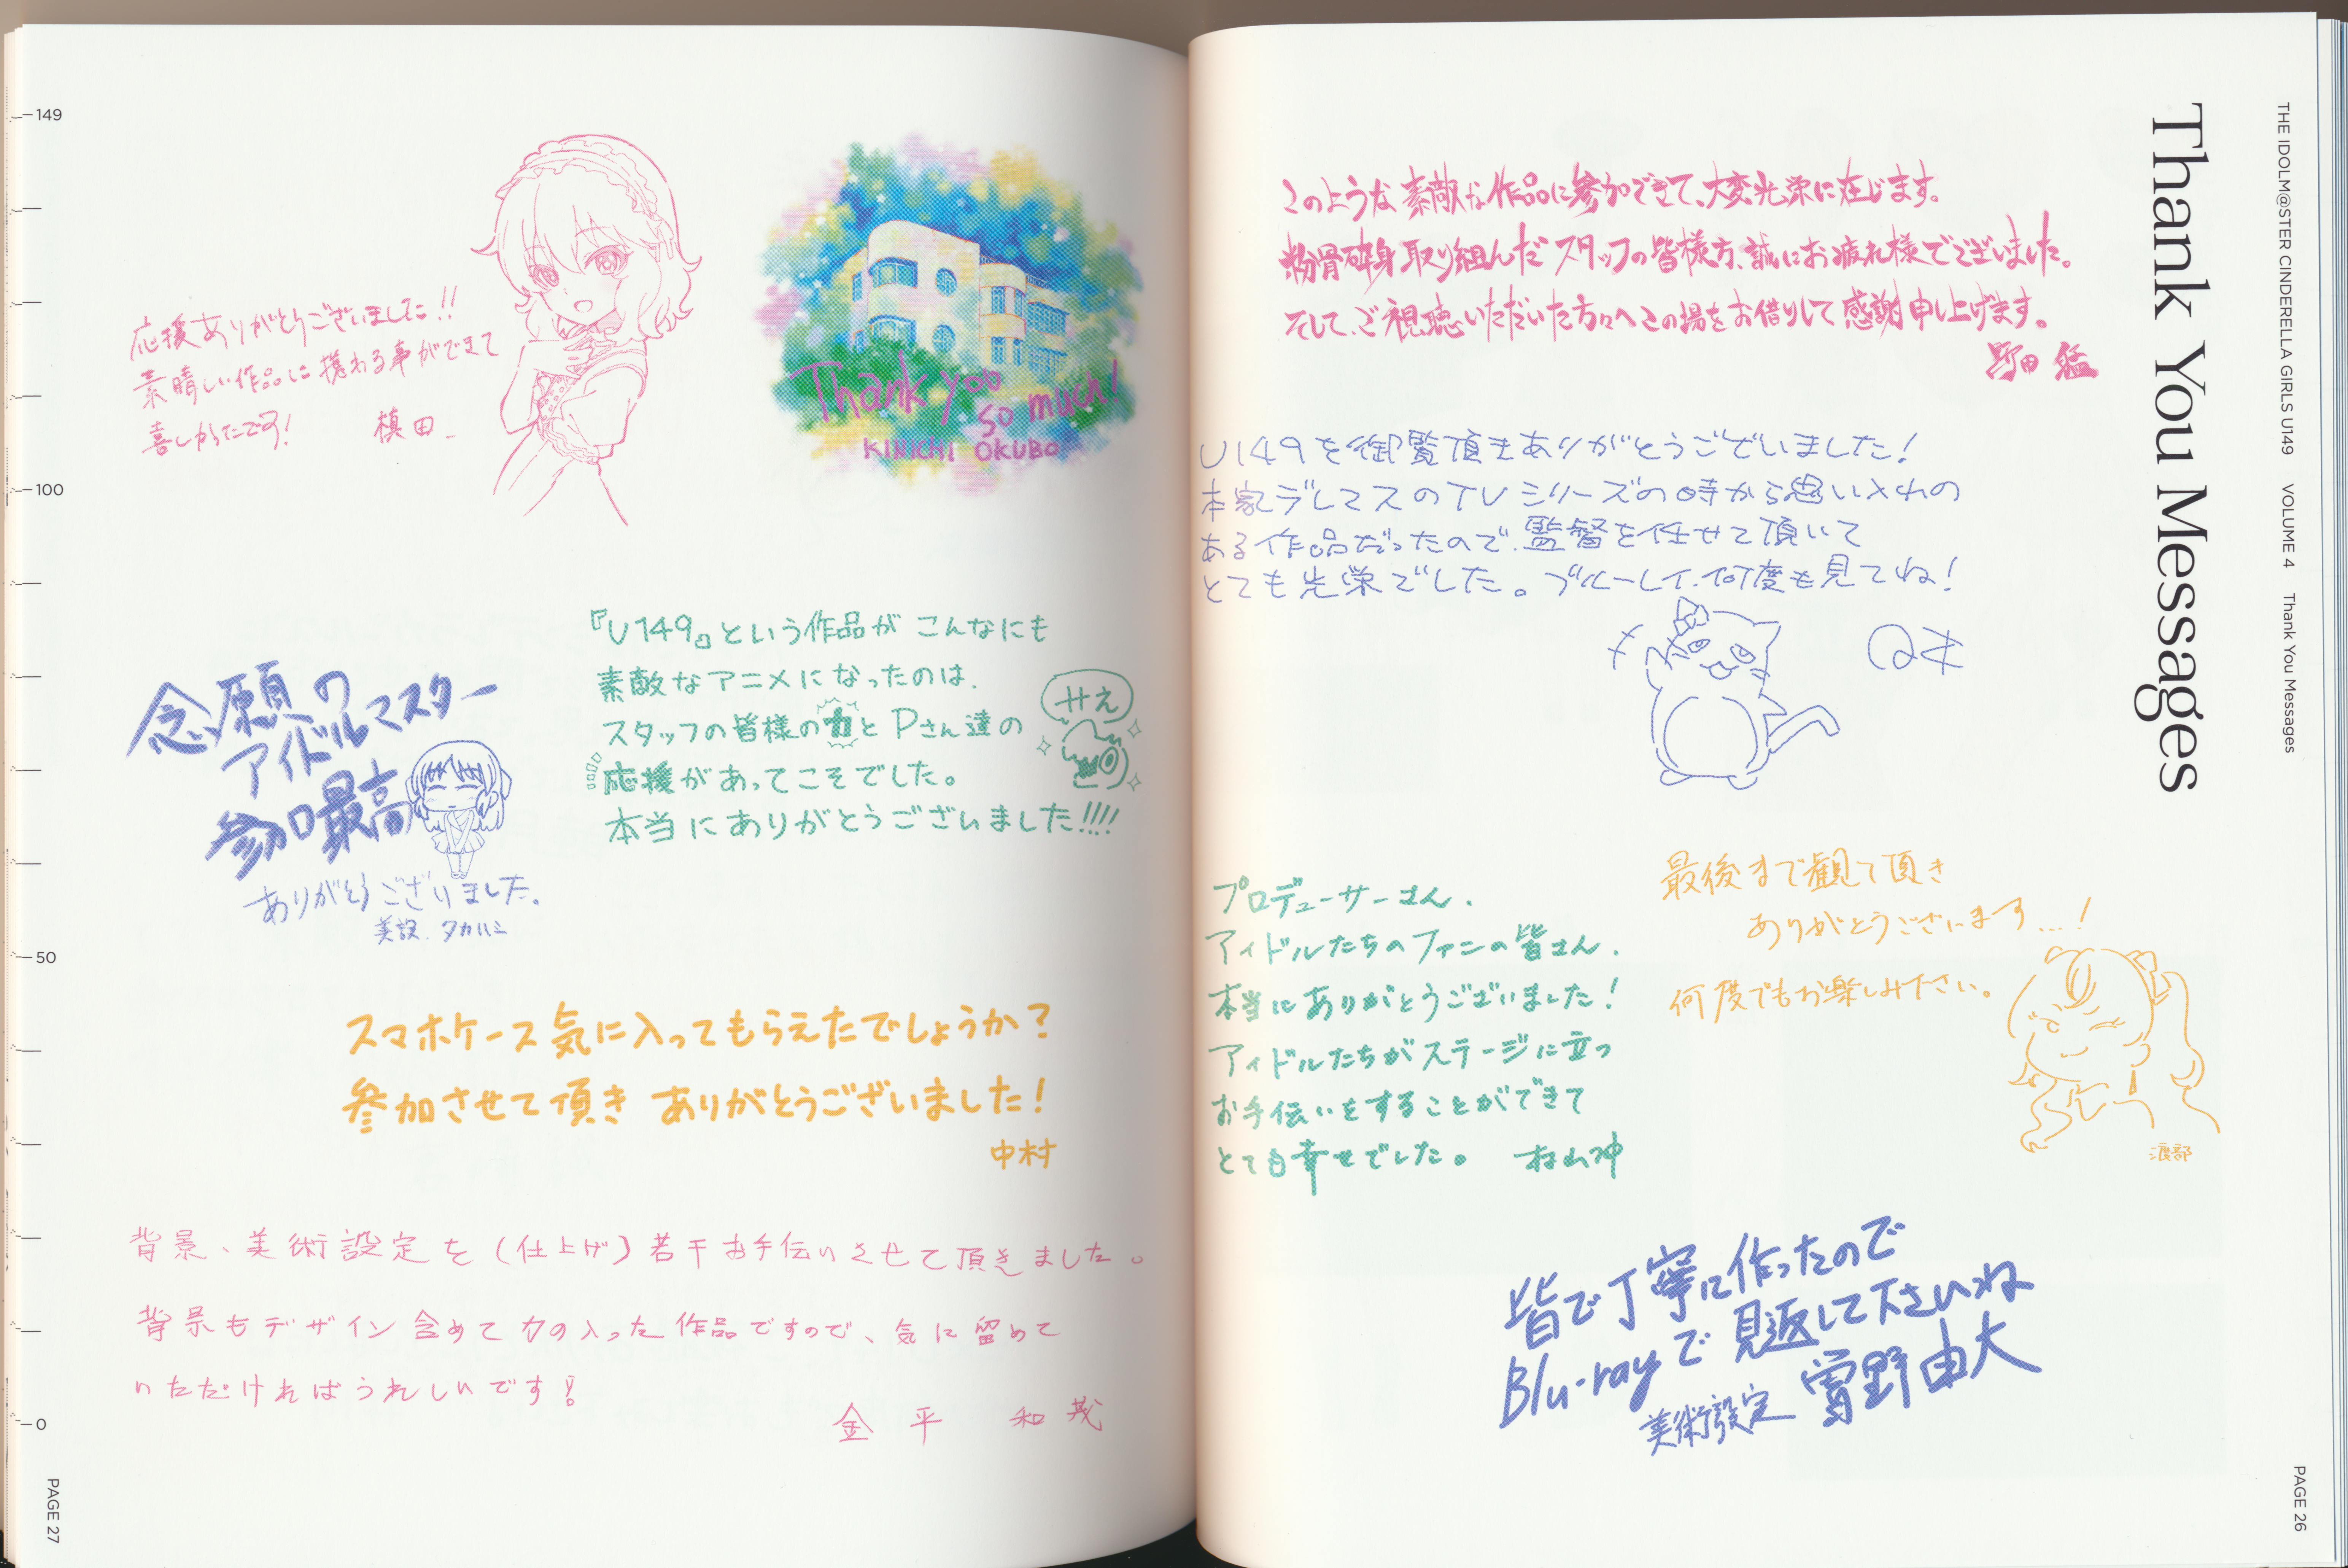 THE IDOLM@STER CINDERELLA GIRLS U149 VOLUME 4 Thank You Messages
Thank You Messages
このような素敵な作品に参加できて、大変光栄に存じます。
粉骨砕身取り組んだスタッフの皆様方、誠にお疲れ様でございました。
そして、ご視聴いただいた方々へこの場をお借りして感謝申し上げます。
U149を御覧頂きありがとうございました!
本家デレマスのTVシリーズの時から思い入れの
ある作品だったので、監督を任せて頂いて
とても光栄でした。ブルーレイ、何度も見てね!
最後まで観て頂き
ありがとうございます…!
何度でもお楽しみ下さい。
渡部
プロデューサーさん、
アイドルたちのファンの皆さん、
本当にありがとうございました!
アイドルたちがステージに立つ
お手伝いをすることができて
とても幸せでした。
皆で丁寧に作ったので
Blu-rayで見返して下さいね
美術設定 曽野由大
PAGE 26
Thank you
so much!
KINICHI OKUBO
応援ありがとうございました!!
素晴しい作品に携わる事ができて
喜しかったです!
槙田
『U149』という作品がこんなにも
素敵なアニメになったのは、
スタッフの皆様の力とPさん達の
応援があってこそでした。
本当にありがとうございました!!!!
念願の
アイドルマスター
参加最高
ありがとうございました。
美設、タカハシ
スマホケース気に入ってもらえたでしょうか?
参加させて頂きありがとうございました!
中村
背景、美術設定を(仕上げ)若干お手伝いさせて頂きました。
背景もデザイン含めて力の入った作品ですので、気に留めて
いただければうれしいです!
金平 和茂
149
100
50
0
PAGE 27